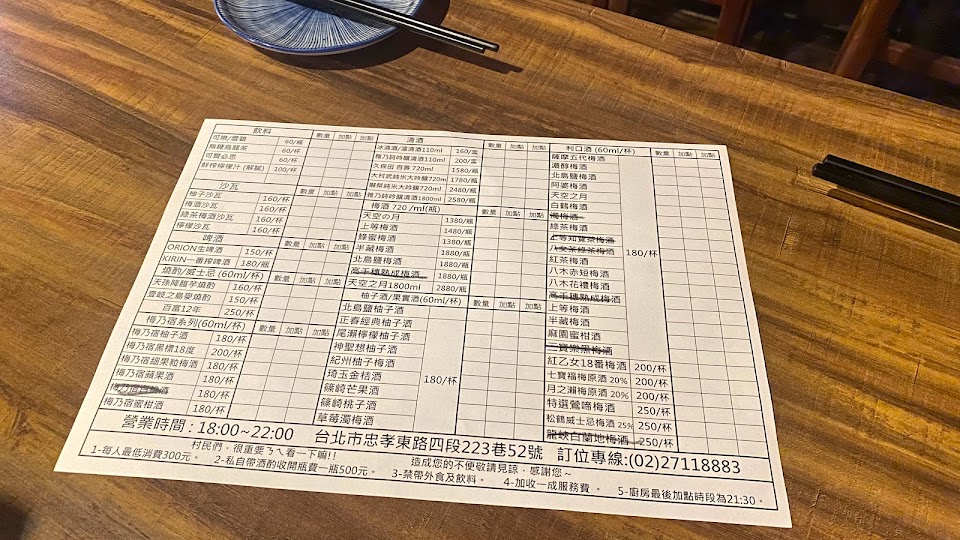 飲料 數量 加點 加點
可樂/雪碧 60/瓶
無糖烏龍茶 60/瓶
可爾必思 60/杯
鮮榨檸檬汁 (解膩) 100/杯
沙瓦 數量 加點 加點
柚子沙瓦 160/杯
梅酒沙瓦 160/杯
綠茶梅沙瓦 160/杯
檸檬沙瓦 160/杯
啤酒
ORION生啤酒 150/杯
KIRIN一番搾啤酒 180/瓶
燒酌/威士忌 (60ml/杯) 數量 加點 加點
天孫降臨芋燒酌 160/杯
壹岐之島麥燒酌 150/杯
百富12年 250/杯
梅乃宿系列(60ml/杯) 數量 加點 加點
梅乃宿柚子酒 180/杯
梅乃宿黑標18度 200/杯
梅乃宿細果粒梅酒 180/杯
梅乃宿蘋果酒 180/杯
180/杯
梅乃宿蜜柑酒 180/杯
清酒 數量 加點 加點
冰清酒/溫清酒110ml 160/盅
雅乃詩吟釀清酒110ml 200/盅
久保田 百壽 720ml 1580/瓶
大村武純米大吟釀720ml 1780/瓶
獺祭純米大吟釀720ml 2480/瓶
雅乃詩吟釀清酒1800ml 2580/瓶
梅酒 720 /ml(瓶) 數量 加點 加點
天空の月 1380/瓶
上等梅酒 1480/瓶
蜂蜜梅酒 1380/瓶
半藏梅酒 1880/瓶
北島鹽梅酒 1880/瓶
高千穗熟成梅酒 1880/瓶
天空之月1800ml 2880/瓶
柚子酒/果實酒(60ml/杯) 數量 加點 加點
北島鹽柚子酒
正春經典柚子酒
尾瀨檸檬柚子酒
神聖想柚子酒
紀州柚子梅酒
琦玉金桔酒
篠崎芒果酒
篠崎桃子酒
草莓濁梅酒
180/杯
利口酒 (60ml/杯) 數量 加點 加點
薩摩五代梅酒
濃醇梅酒
北島鹽梅酒
阿婆梅酒
天空之月
白鶴梅酒
濁梅酒
綠茶梅酒
上等知覽茶梅酒
八女茶綠茶梅酒
紅茶梅酒
八木赤短梅酒
八木花禮梅酒
高千穗熟成梅酒
上等梅酒
半藏梅酒
麻園蜜柑酒
二寶樂黑梅酒
180/杯
紅乙女18番梅酒 200/杯
七寶福梅原酒 20% 200/杯
月之瀨梅原酒 20% 200/杯
特選鶯啼梅酒 250/杯
松鶴威士忌梅酒 25% 250/杯
龍峽白蘭地梅酒 250/杯
營業時間 : 18:00~22:00 台北市忠孝東路四段223巷52號 訂位專線:(02)27118883
村民們，很重要ㄋㄟ看一下嘛!! 造成您的不便敬請見諒，感謝您~
1-每人最低消費300元。 2-私自帶酒酌收開瓶費一瓶500元。 3-禁帶外食及飲料。 4-加收一成服務費。 5-廚房最後加點時段為21:30。